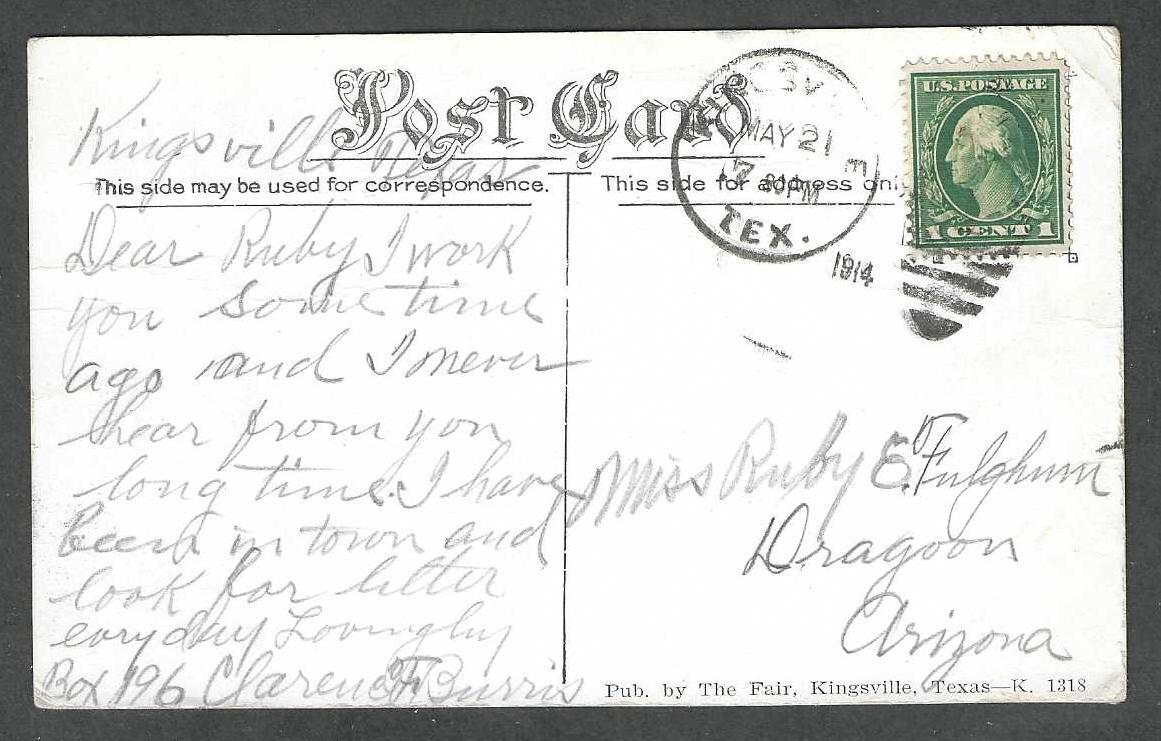 Post Card
Kingsville Texas
This side may be used for correspondence.
Dear Ruby I work
you some time
ago and I never
hear from you
long time. I have
been in town and
look for letter
evry day Lovingly
Box 196 Clarence F Burris
This side for address onl
SV
MAY 21
PM
TEX.
1914
U.S. POSTAGE
1 CENT 1
Miss Ruby E. Fulghum
Dragoon
Arizona
Pub. by The Fair, Kingsville, Texas—K. 1318